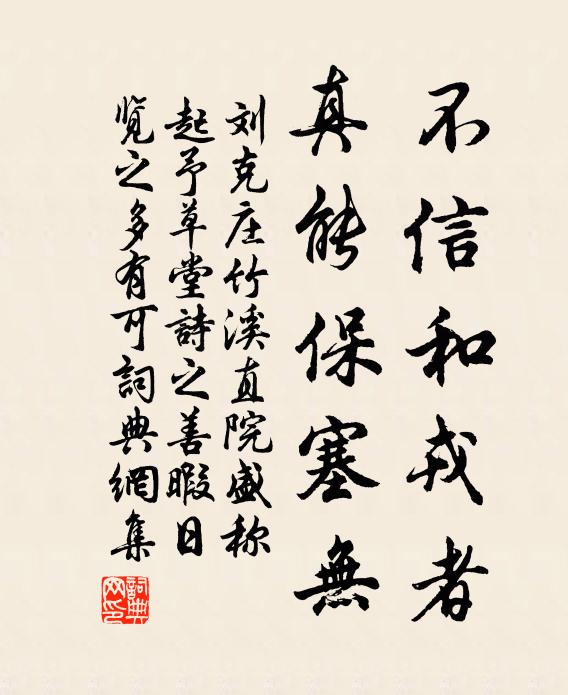 不信和戎者
真能保塞無
刘克庄竹溪直院盛称
起予草堂詩之善暇日
覧之多有可詞典網集
詞典
网印